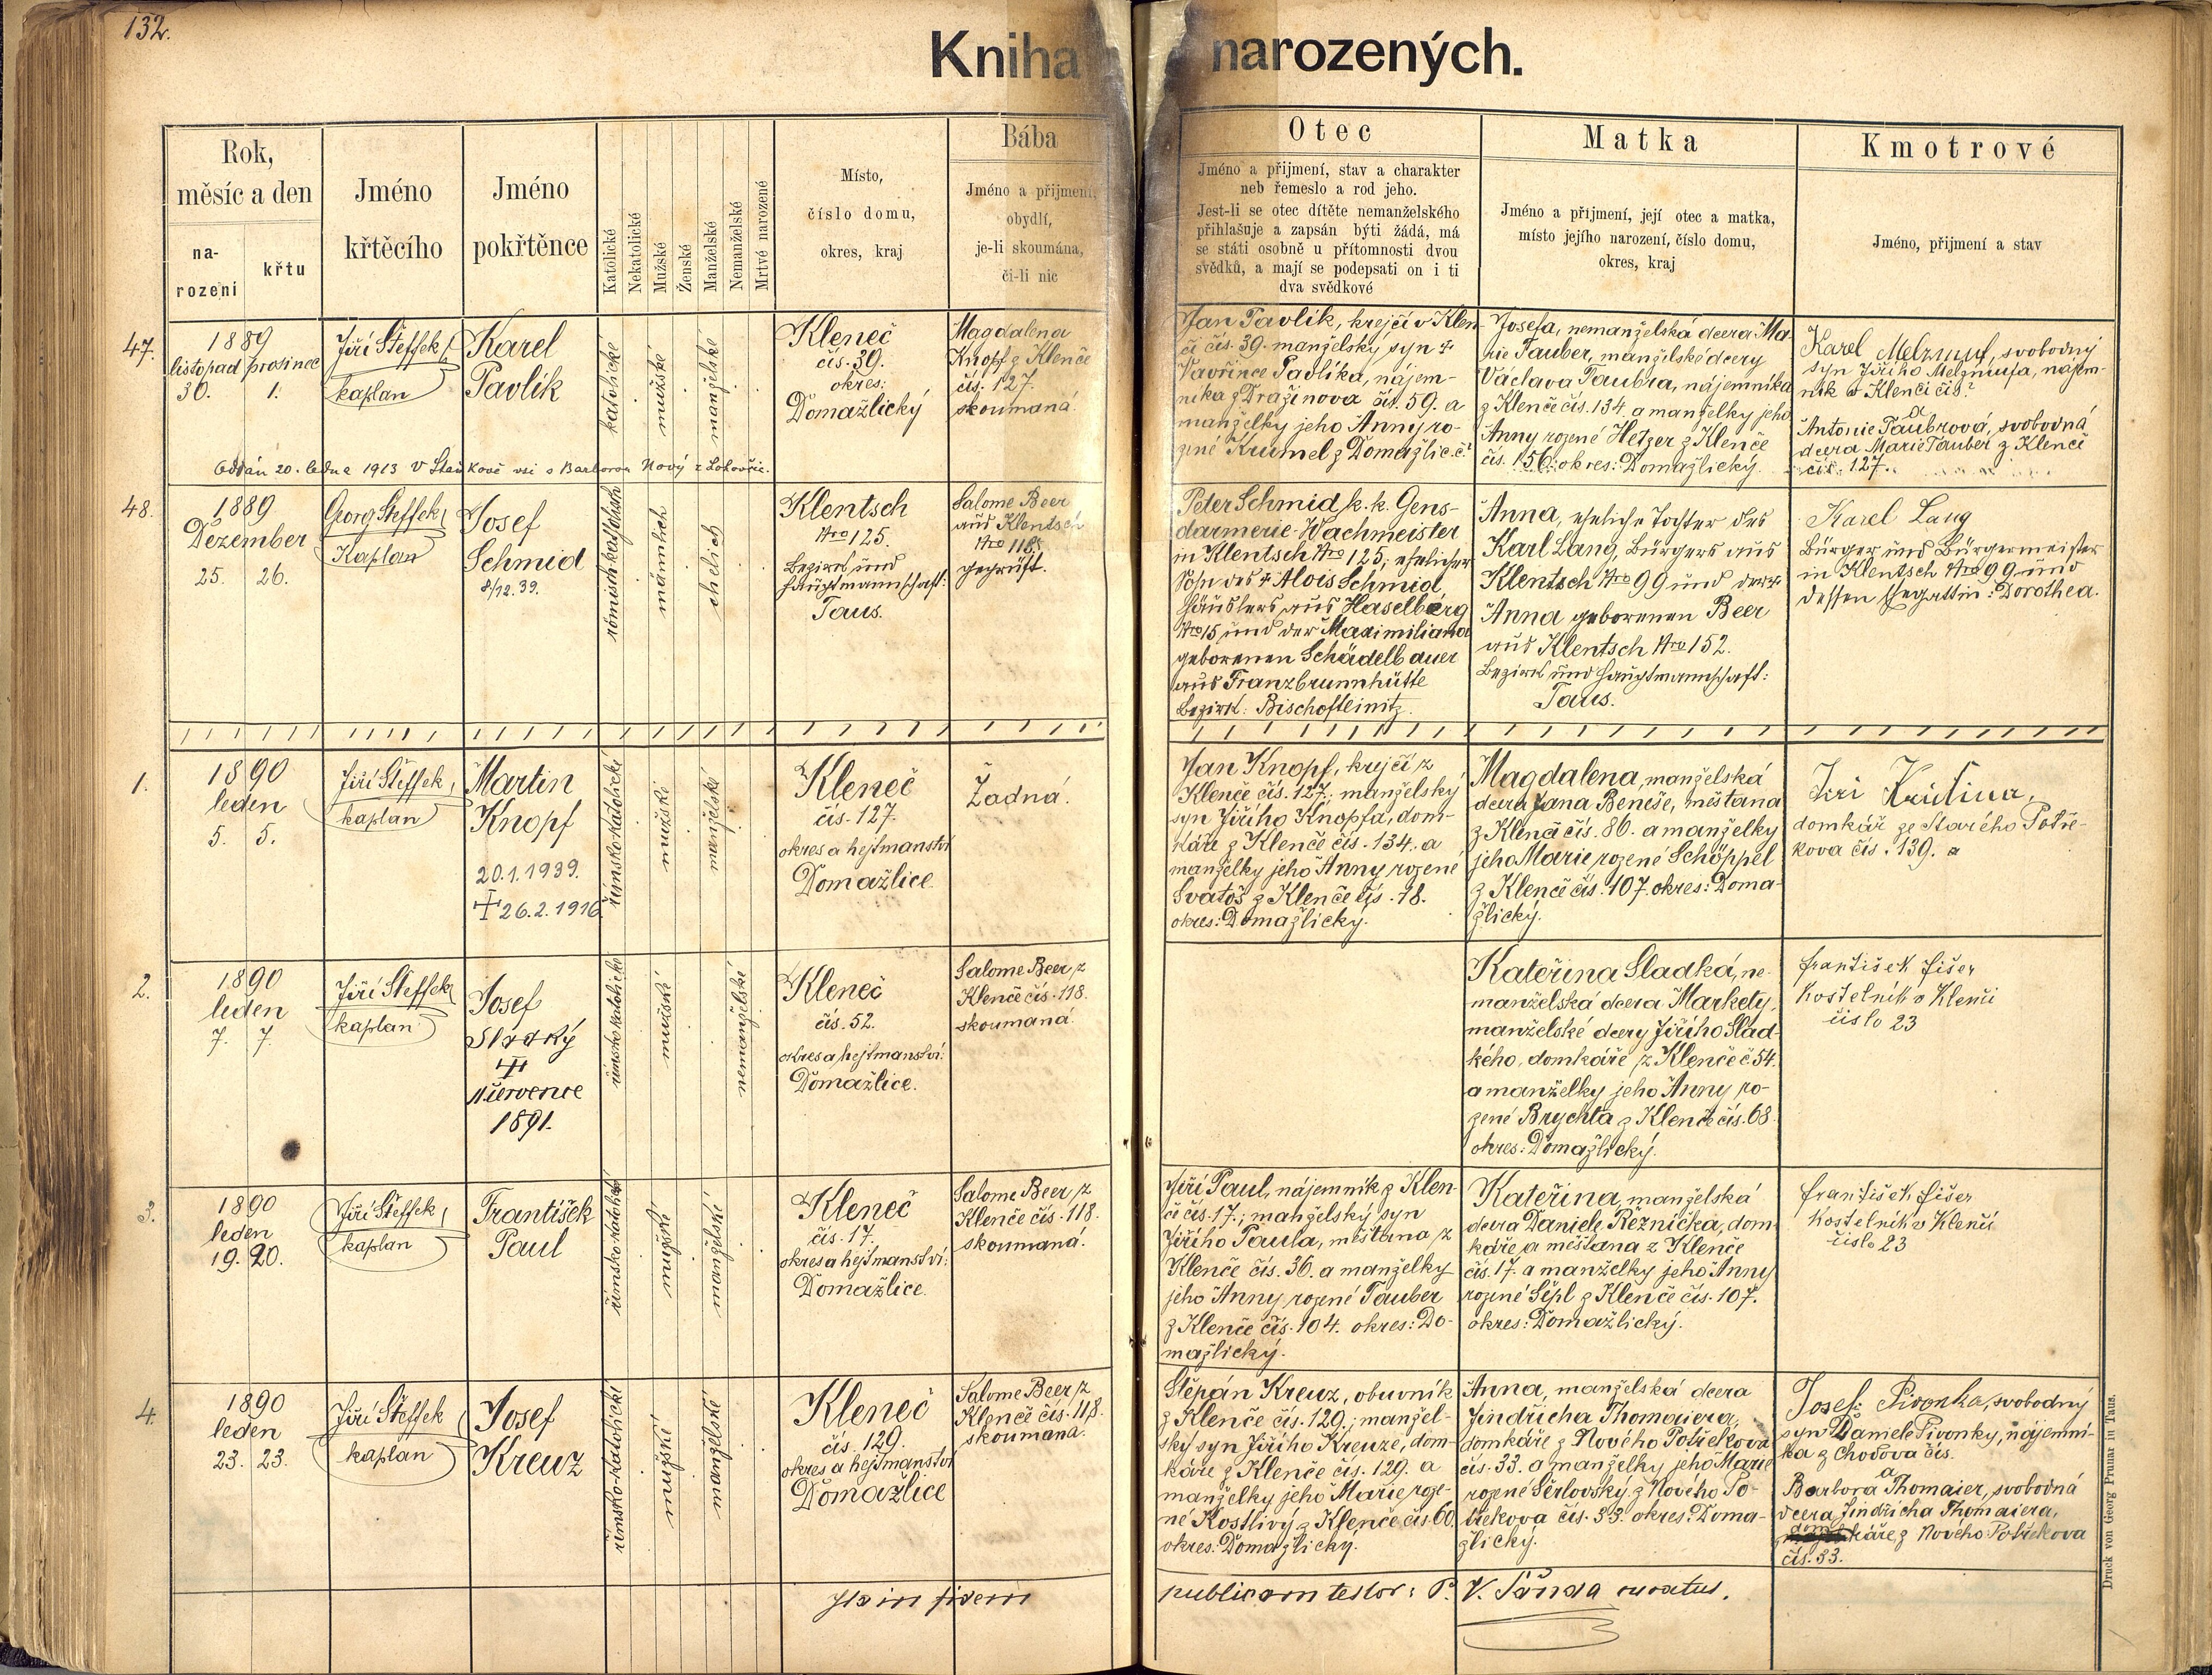 132.
Kniha narozených.
Rok,
měsíc a den
na-
rození
křtu
Jméno
křtěcího
Jméno
pokřtěnce
Katolické
Nekatolické
Mužské
Ženské
Manželské
Nemanželské
Mrtvé narozené
Místo,
číslo domu,
okres, kraj
Bába
Jméno a přijmení,
obydlí,
je-li skoumána,
či-li nic
Otec
Jméno a přijmení, stav a charakter
neb řemeslo a rod jeho.
Jest-li se otec dítěte nemanželského
přihlašuje a zapsán býti žádá, má
se státi osobně u přítomnosti dvou
svědků, a mají se podepsati on i ti
dva svědkové
Matka
Jméno a přijmení, její otec a matka,
místo jejího narození, číslo domu,
okres, kraj
Kmotrové
Jméno, přijmení a stav
47.
1889
listopad prosinec
30. 1.
Jiří Šteffek,
kaplan
Karel
Pavlík
katolické
mužské
manželské
Kleneč
čís. 39.
okres:
Domažlický
Magdalena
Knopf z Klenče
čís. 127.
skoumaná.
Jan Pavlík, krejčí v Klen-
či čís. 39. manželský syn †
Vavřince Pavlíka, nájem-
níka z Dražinova čís. 59. a
manželky jeho Anny ro-
zené Kummel z Domažlic č.?
Josefa, nemanželská dcera Ma-
rie Tauber, manželské dcery
Václava Taubra, nájemníka
z Klenče čís. 134. a manželky jeho
Anny rozené Hetzer z Klenče
čís. 156. okres: Domažlický.
Karel Melzmuf, svobodný
syn Jiřího Melzmufa, nájem-
ník v Klenči čís?
a
Antonie Taubrová, svobodná
dcera Marie Tauber z Klenče
čís. 127.
Oddán 20. ledna 1913 v Staňkově vsi s Barborou Nový z Lohovčic.
48.
1889
Dezember
25. 26.
Georg Steffek,
Kaplan
Josef
Schmid
8/12. 39.
römisch-katholisch
männlich
ehelich
Klentsch
Nro 125.
Bezirk und
Hauptmannschaft:
Taus.
Salome Beer
aus Klentsch
Nro 118.
geprüft.
Peter Schmid k. k. Gens-
darmerie-Wachmeister
in Klentsch Nro 125; ehelicher
Sohn des † Alois Schmid
Häuslers aus Haselberg
Nro 15 und der Maximiliana
geborenen Schädelbauer
aus Franzbrunnhütte
Bezirk: Bischofteinitz.
Anna, eheliche Tochter des
Karl Lang, Bürgers aus
Klentsch Nro 99 und der †
Anna geborenen Beer
aus Klentsch Nro 152.
Bezirk und Hauptmannschaft:
Taus.
Karel Lang
Bürger und Bürgermeister
in Klentsch Nro 99 und
dessen Ehegattin: Dorothea.
1.
1890
leden
5. 5.
Jiří Šteffek,
kaplan
Martin
Knopf
20.1.1939.
† 26.2.1916
římsko-katolické
mužské
manželské
Kleneč
čís. 127.
okres a hejtmanství
Domažlice.
Žádná.
Jan Knopf, krejčí z
Klenče čís. 127; manželský
syn Jiřího Knopfa, dom-
káře z Klenče čís. 134. a
manželky jeho Anny rozené
Svatoš z Klenče čís. 18.
okres: Domažlický.
Magdalena, manželská
dcera Jana Beneše, měštana
z Klenče čís. 86. a manželky
jeho Marie rozené Schöppel
z Klenče čís. 107. okres: Doma-
žlický.
Jiri
domkář ze Starého Potře-
kova čís. 139. a
2.
1890
leden
7. 7.
Jiří Šteffek,
kaplan
Josef
Sladký
†
11 července
1891.
římsko katolické
mužské
nemanželské
Kleneč
čís. 52.
okres a hejtmanství:
Domažlice.
Salome Beer z
Klenče čís. 118.
skoumaná.
Kateřina Sladká, ne-
manželská dcera Markety,
manželské dcery Jiřího Slad-
kého, domkáře z Klenče č 54.
a manželky jeho Anny ro-
zené Brychta z Klenče čís. 68.
okres: Domažlický.
František Fišer
Kostelník v Klenči
číslo 23
3.
1890
leden
19. 20.
Jiří Šteffek,
kaplan
František
Paul
římsko-katolické
mužské
manželské
Kleneč
čís. 17.
okres a hejtmanství:
Domažlice.
Salome Beer z
Klenče čís. 118.
skoumaná.
Jiří Paul, nájemník z Klen-
če čís. 17.; manželský syn
Jiřího Paula, měštana z
Klenče čís. 36. a manželky
jeho Anny rozené Tauber
z Klenče čís. 104. okres: Do-
mažlický.
Kateřina, manželská
dcera Daniele Řezníčka, dom-
káře a měštana z Klenče
čís. 17. a manželky jeho Anny
rozené Šépl z Klenče čís. 107.
okres: Domažlický.
František Fišer
Kostelník v Klenči
číslo 23
4.
1890
leden
23. 23.
Jiří Šteffek
kaplan
Josef
Kreuz
římsko-katolické
mužské
manželské
Kleneč
čís. 129.
okres a hejtmanství
Domažlice
Salome Beer z
Klenče čís. 118.
skoumaná.
Štěpán Kreuz, obuvník
z Klenče čís. 129.; manžel-
ský syn Jiřího Kreuze, dom-
káře z Klenče čís. 129. a
manželky jeho Marie roze-
né Kostlivý z Klenče čís. 60.
okres: Domažlický.
Anna, manželská dcera
Jindřicha Thomaiera,
domkáře z Nového Potřekova
čís. 33. a manželky jeho Marie
rozené Šerlovský z Nového Po-
třekova čís. 33. okres: Doma-
žlický.
Josef Pivonka, svobodný
syn Daniele Pivonky, nájemní-
ka z Chodova čís.
a
Barbora Thomaier, svobodná
dcera Jindřicha Thomaiera,
domkáře z Nového Potřekova
čís. 33.
in fidem publicam testor: P. V. Šanda curatus.
Druck von Georg Prunar in Taus.